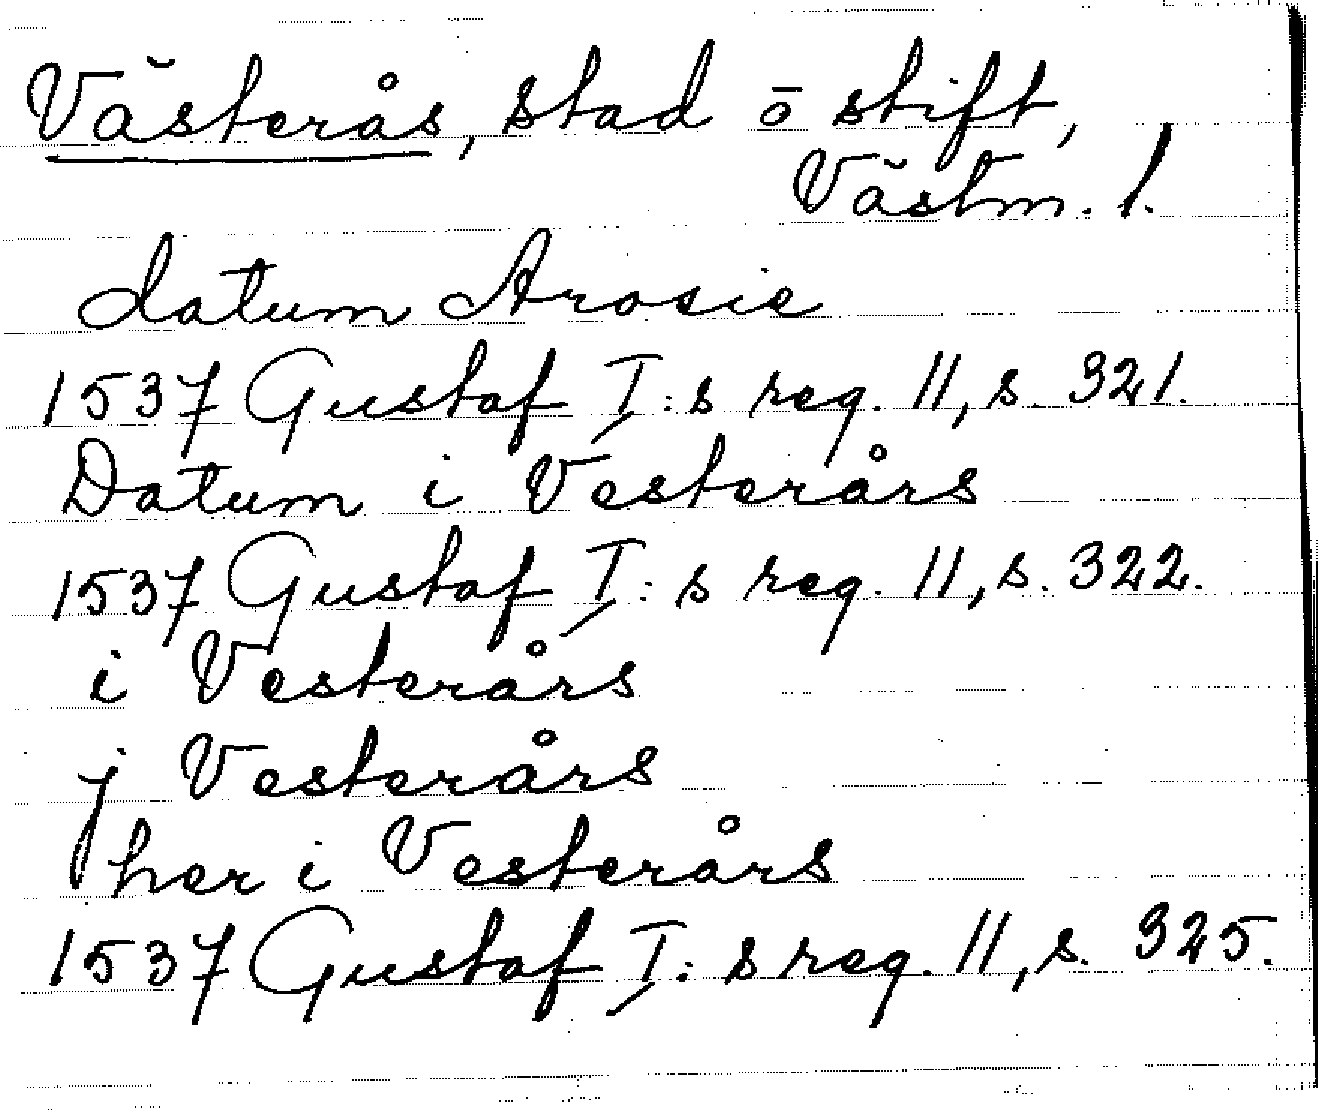 Västerås, stad ō stift,
Västm. l.
datum Arosie
1537 Gustaf I:s reg. 11, s. 321.
Datum i Vesterårs
1537 Gustaf I:s reg. 11, s. 322.
i Vesterårs
j Vesterårs
her i Vesterårs
1537 Gustaf I:s reg. 11, s. 325.